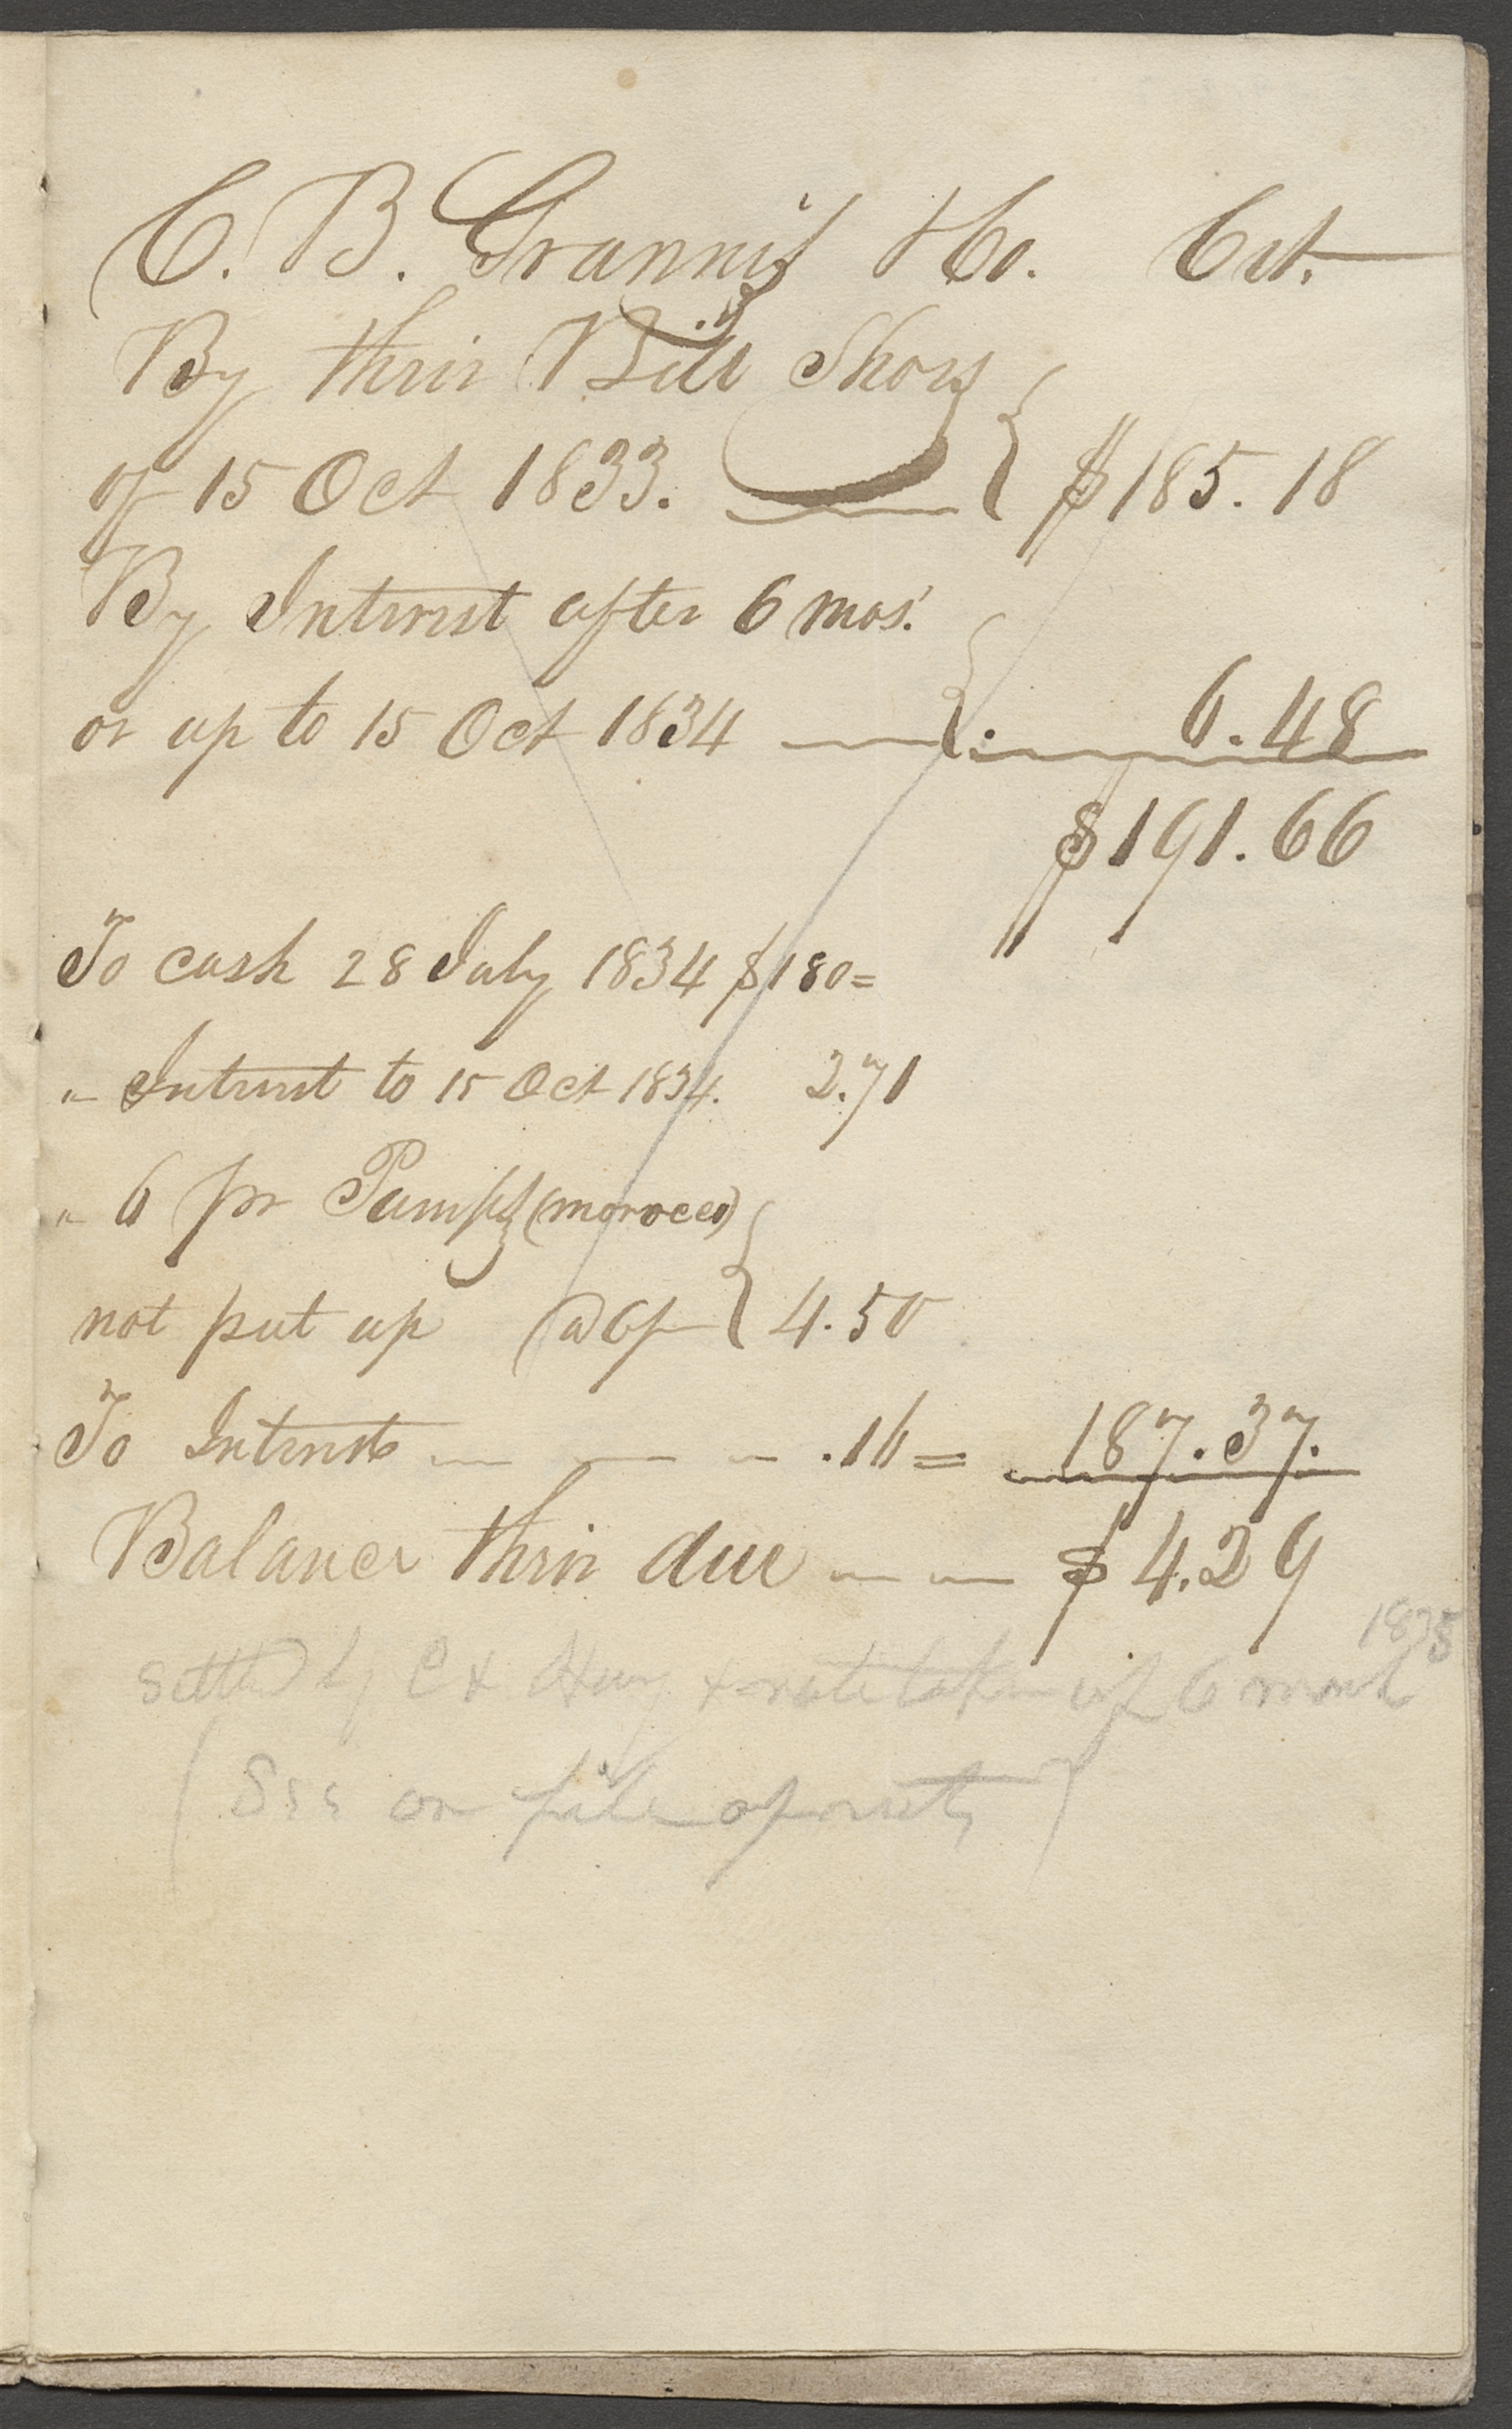 C. B. Grannis & Co. Cr.
By their Bill Shoes
of 15 Oct 1833. $185.18
By Interest after 6 mos.
or up to 15 Oct 1834 6.48
$191.66
To cash 28 July 1834 $180=
" Interest to 15 Oct 1834. 2.71
" 6 pr Pumps (morocco)
not put up @ 6/ 4.50
To Interest .16 = 187.37.
Balance their due $4.29
1835
Settled by & note taken up 6 
(See on file of)